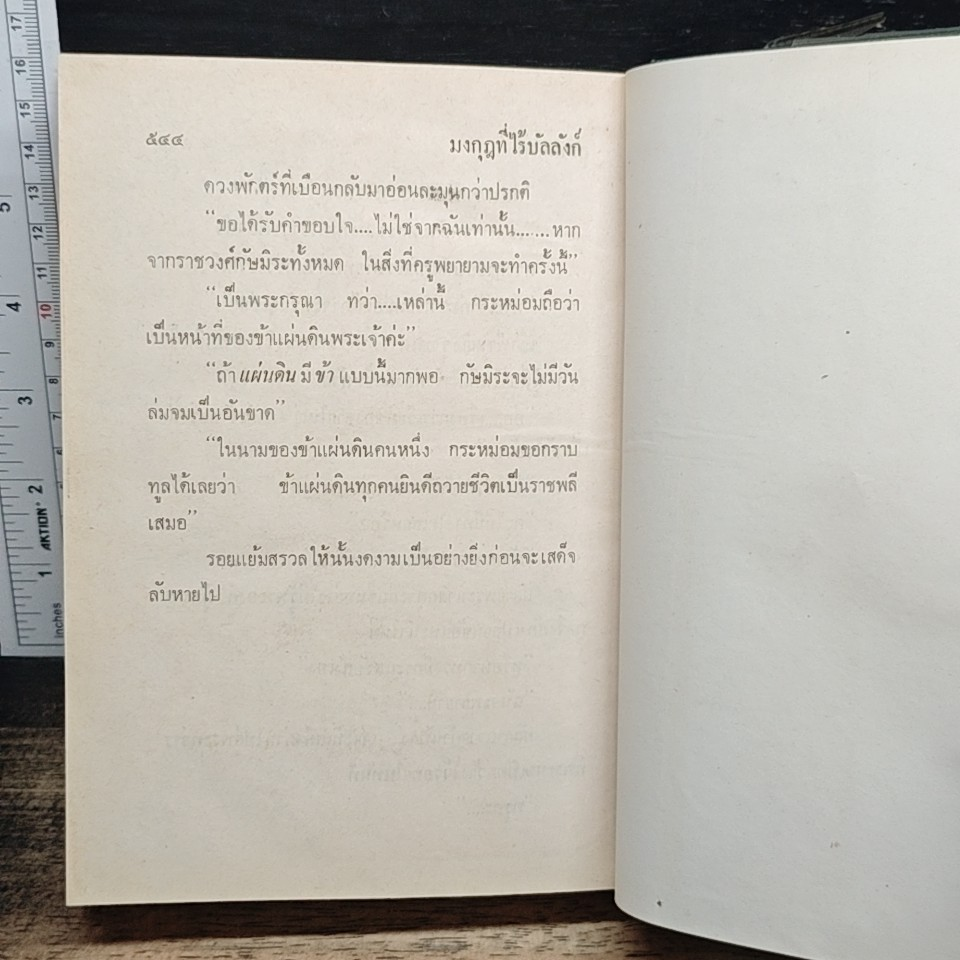 ๕๔๔
มงกุฎที่ไร้บัลลังก์
ดวงพักตร์ที่เบือนกลับมาอ่อนละมุนกว่าปรกติ
“ขอได้รับคำขอบใจ....ไม่ใช่จากฉันเท่านั้น.......หาก
จากราชวงศ์กัษมิระทั้งหมด ในสิ่งที่ครูพยายามจะทำครั้งนี้”
“เป็นพระกรุณา ทว่า....เหล่านี้ กระหม่อมถือว่า
เป็นหน้าที่ของข้าแผ่นดินพระเจ้าค่ะ”
“ถ้า แผ่นดิน มี ข้า แบบนี้มากพอ กัษมิระจะไม่มีวัน
ล่มจมเป็นอันขาด”
“ในนามของข้าแผ่นดินคนหนึ่ง กระหม่อมขอกราบ
ทูลได้เลยว่า ข้าแผ่นดินทุกคนยินดีถวายชีวิตเป็นราชพลี
เสมอ”
รอยแย้มสรวลให้นั้นงดงามเป็นอย่างยิ่งก่อนจะเสด็จ
ลับหายไป
17
16
15
14
13
12
11
10
9
8
7
6
5
4
3
2
1
AKTION
inches